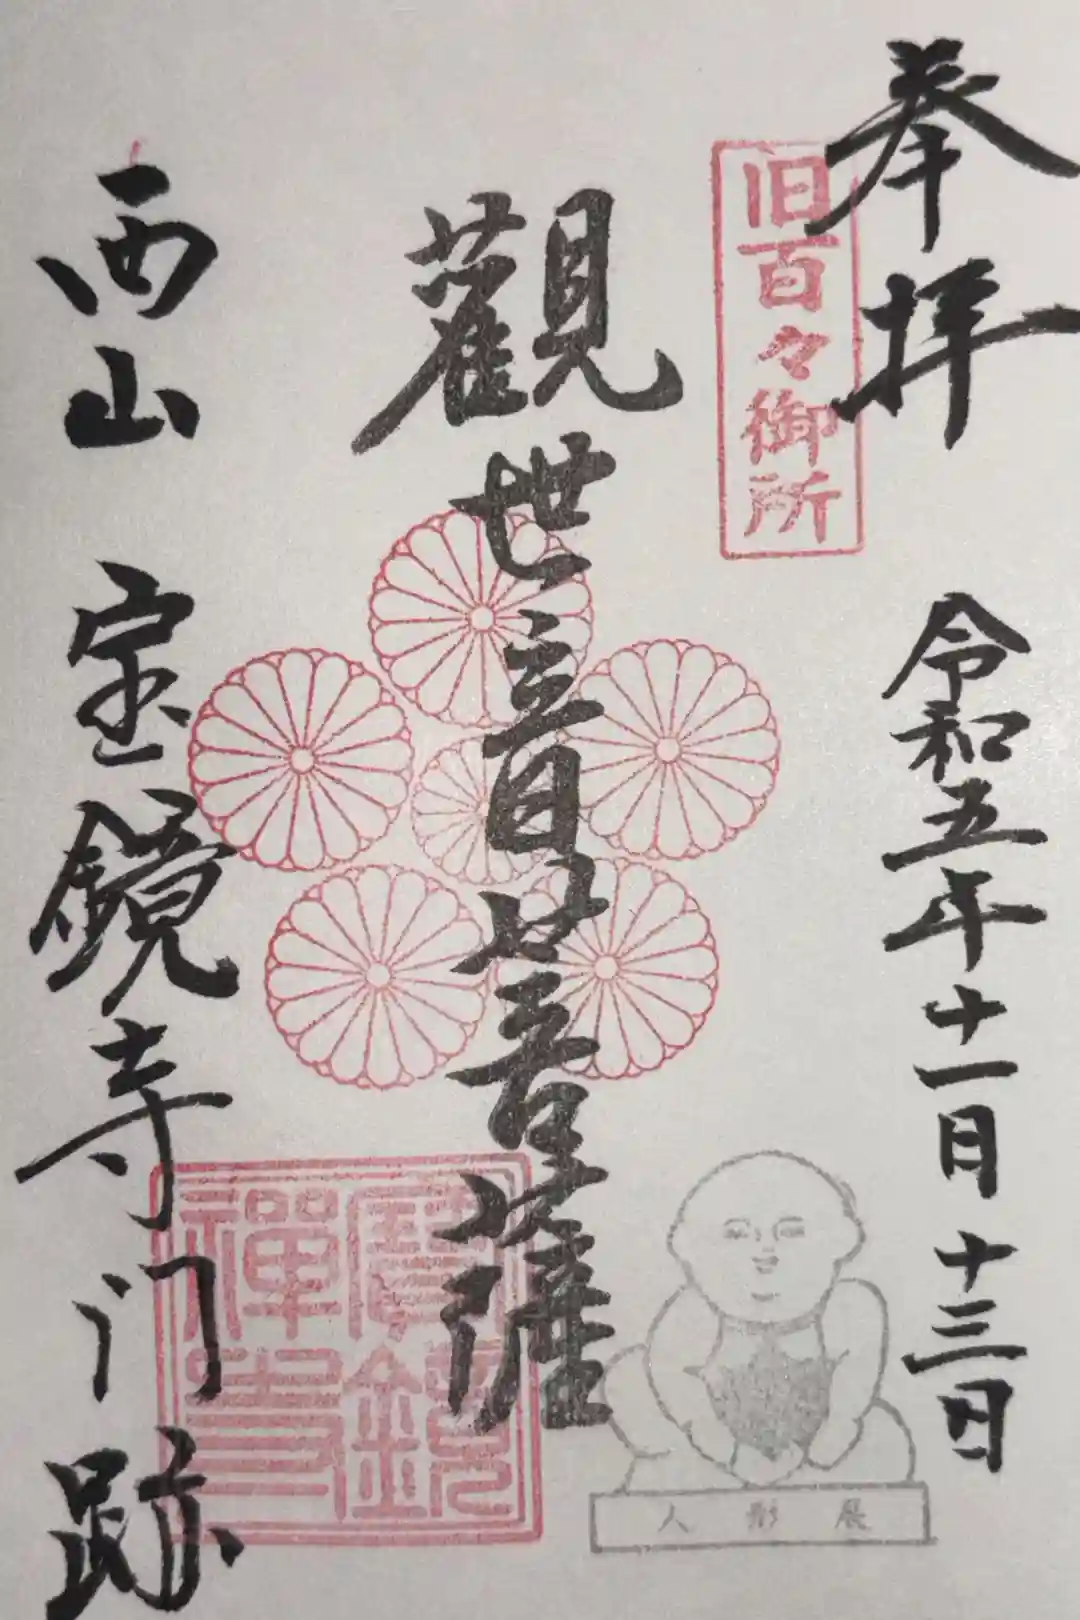 奉拝
令和五年十一月十三日
旧百々御所
觀世音菩薩
西山 宝鏡寺门跡
寳鏡
禅寺
人形展